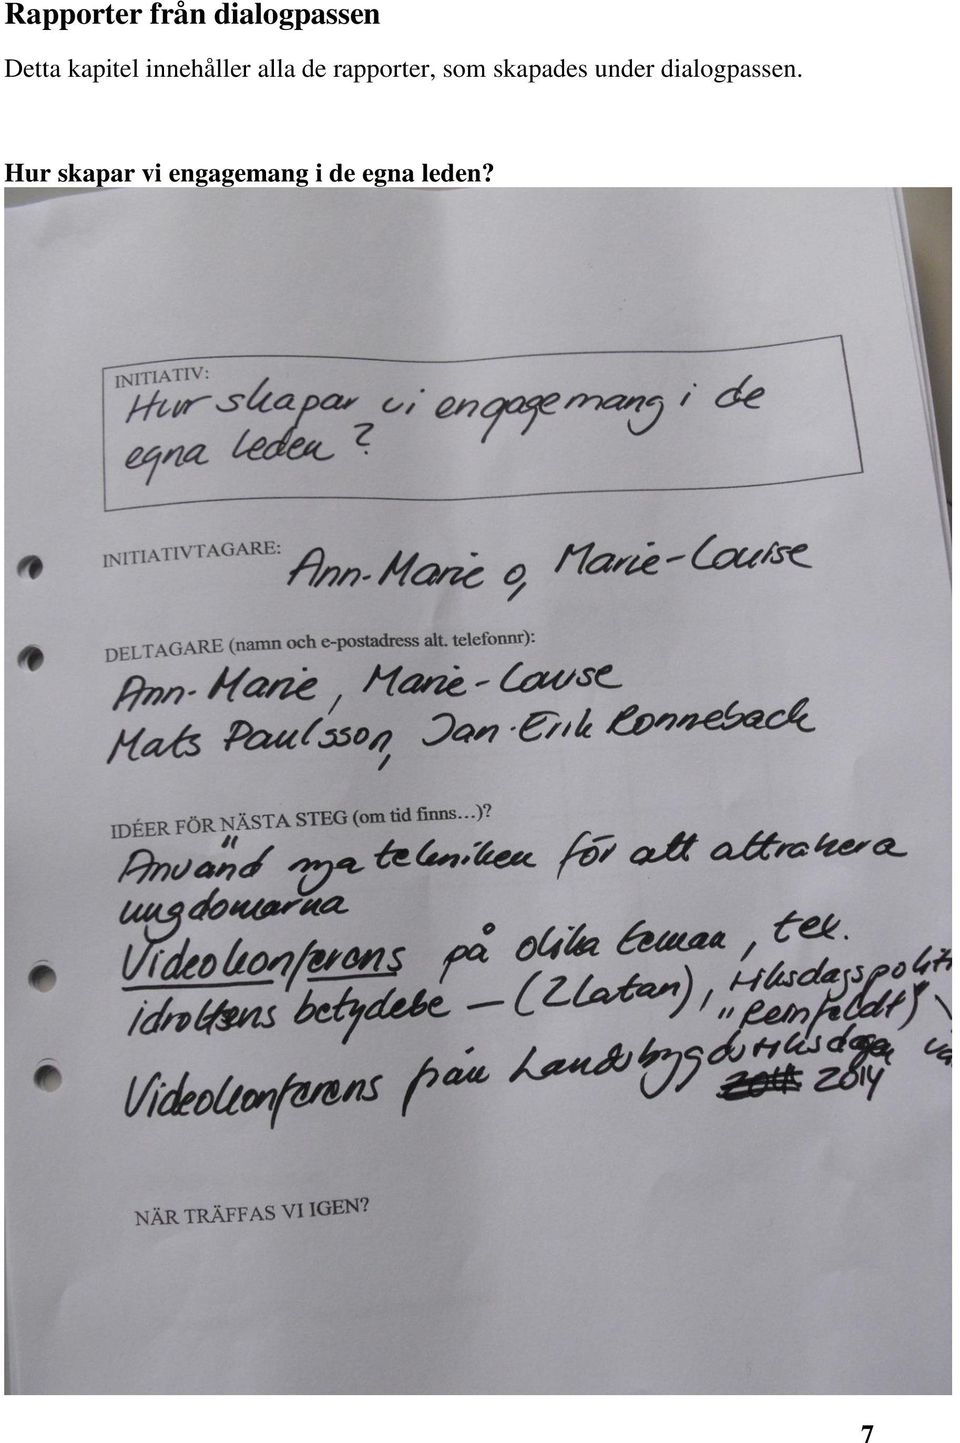 Rapporter från dialogpassen
Detta kapitel innehåller alla de rapporter, som skapades under dialogpassen.
Hur skapar vi engagemang i de egna leden?
INITIATIV:
Hur skapar vi engagemang i de
egna leden?
INITIATIVTAGARE: Ann-Marie o, Marie-Louise
DELTAGARE (namn och e-postadress alt. telefonnr):
Ann-Marie, Marie-Louise
Mats Paulsson, Jan-Erik Ronneback
IDÉER FÖR NÄSTA STEG (om tid finns...)?
Använd nya tekniken för att attrahera
ungdomarna
Videokonferens på olika teman, tex.
idrottens betydebe – (Zlatan), riksdagspoliti
"Reinfeldt)
Videokonferens från Landsbygdsriksdagen
2014
NÄR TRÄFFAS VI IGEN?
7